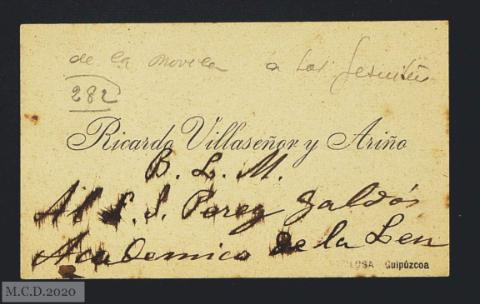 de la novela a los Jesuitas
282
Ricardo Villaseñor y Ariño
B. L. M.
Al S. S. Perez Galdós
Academico de la Len
TOLOSA Guipúzcoa
M.C.D.2020